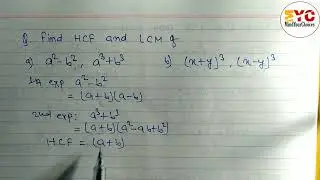 EYC
Q Find HCF and LCM of
a) a²-b², a³+b³ b) (x+y)³, (x-y)³
1st exp a²-b²
= (a+b)(a-b)
2nd exp: a³+b³
= (a+b)(a²-ab+b²)
HCF = (a+b)